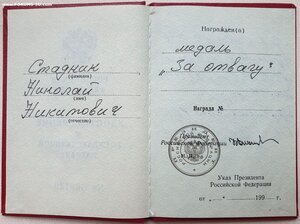 www.FORUMS-SU.com
Стадник
(фамилия)
Николай
(имя)
Никитович
(отчество)
Награжден(а)
медаль
„За отвагу“
Награда №
Российской Федерации
М.П.
Указ Президента
Российской Федерации
от „ “ 199 г.